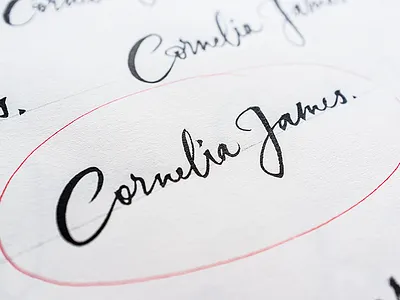 Cornelia James
Cornelia James
Cornelia James.